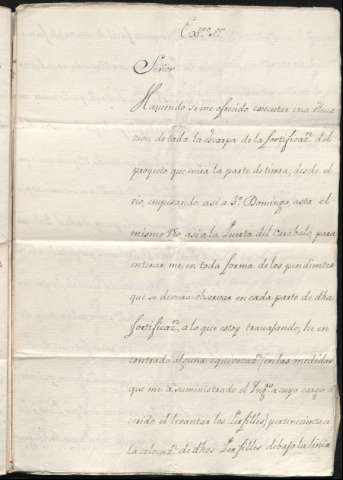 Ex.mo S.r
Señor
Haviendo se me ofrecido executar una Eleva
cion de toda la Escarpa de la fortificaz.n del
proyecto que mira la parte de tierra, desde el
rio, empesando asi a S.to Domingo, asta el
mismo Rio asia la Puerta del
enterar me en toda forma de los pendientes
que se deveran observar en cada parte de dha
fortificaz.n, a lo que estoy travajando, he en
contrado alguna equivocaz.n (en las medidas
que me a suministrado el Ing.o a cuyo cargo a
sido el levantar los Perfilles) perteneciente a
la colocaz.n de dhos Perfilles debajo la linea